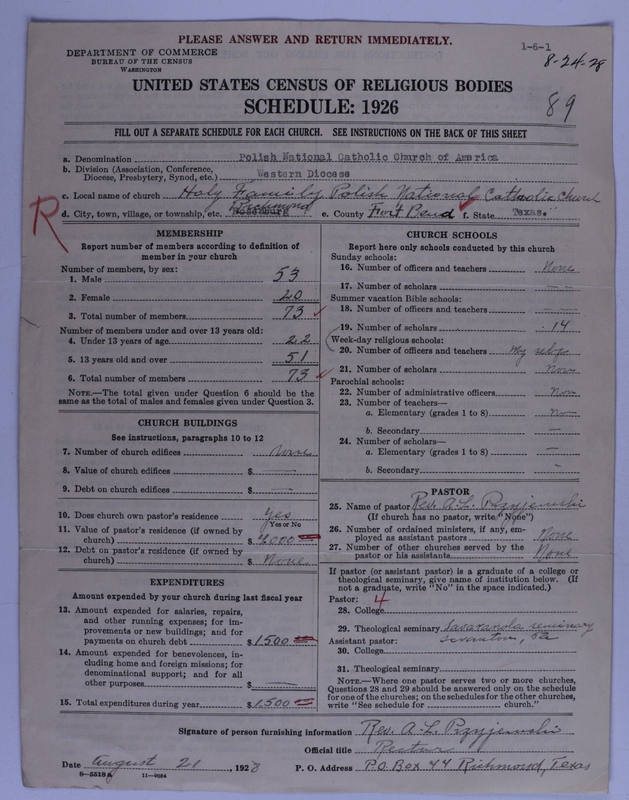 PLEASE ANSWER AND RETURN IMMEDIATELY.
DEPARTMENT OF COMMERCE
BUREAU OF THE CENSUS
WASHINGTON
1-6-1
8-24-28
UNITED STATES CENSUS OF RELIGIOUS BODIES
SCHEDULE: 1926
89
FILL OUT A SEPARATE SCHEDULE FOR EACH CHURCH. SEE INSTRUCTIONS ON THE BACK OF THIS SHEET
a. Denomination Polish National Catholic Church of America
b. Division (Association, Conference, Diocese, Presbytery, Synod, etc.) Western Diocese
c. Local name of church Holy Family Polish National Catholic Church
R
d. City, town, village, or township, etc. Richmond e. County Fort Bend f. State Texas.
MEMBERSHIP
Report number of members according to definition of
member in your church
Number of members, by sex:
1. Male 53
2. Female 20
3. Total number of members 73
Number of members under and over 13 years old:
4. Under 13 years of age 22
5. 13 years old and over 51
6. Total number of members 73
NOTE.—The total given under Question 6 should be
same as the total of males and females given under Question 3.
CHURCH BUILDINGS
See instructions, paragraphs 10 to 12
7. Number of church edifices none
8. Value of church edifices $ —
9. Debt on church edifices $ —
10. Does church own pastor's residence Yes
Yes or No
11. Value of pastor's residence (if owned by
church) $ 4000
12. Debt on pastor's residence (if owned by
church) $ None
EXPENDITURES
Amount expended by your church during last fiscal year
13. Amount expended for salaries, repairs,
and other running expenses; for im-
provements or new buildings; and for
payments on church debt $ 1500
14. Amount expended for benevolences, in-
cluding home and foreign missions; for
denominational support; and for all
other purposes $ —
15. Total expenditures during year $ 1500
CHURCH SCHOOLS
Report here only schools conducted by this church
Sunday schools:
16. Number of officers and teachers None
17. Number of scholars — —
Summer vacation Bible schools:
18. Number of officers and teachers —
19. Number of scholars 14
Week-day religious schools:
20. Number of officers and teachers My self
21. Number of scholars None
Parochial schools:
22. Number of administrative officers Non
23. Number of teachers—
a. Elementary (grades 1 to 8) No
b. Secondary —
24. Number of scholars—
a. Elementary (grades 1 to 8) —
b. Secondary -
PASTOR
25. Name of pastor Rev. A. L.
(If church has no pastor, write "None")
26. Number of ordained ministers, if any, em-
ployed as assistant pastors None
27. Number of other churches served by the
pastor or his assistants None
If pastor (or assistant pastor) is a graduate of a college or
theological seminary, give name of institution below. (If
not a graduate, write "No" in the space indicated.)
Pastor: 4
28. College
29. Theological seminary Savaranola seminary
Assistant pastor: Scranton, Pa
30. College
31. Theological seminary
NOTE.—Where one pastor serves two or more churches,
Questions 28 and 29 should be answered only on the schedule
for one of the churches; on the schedules for the other churches,
write "See schedule for church."
Signature of person furnishing information Rev. A. L.
Official title
Date August 21, 1928 P. O. Address P.O. Box 44 Richmond, Texas
8-5518a 11-9054